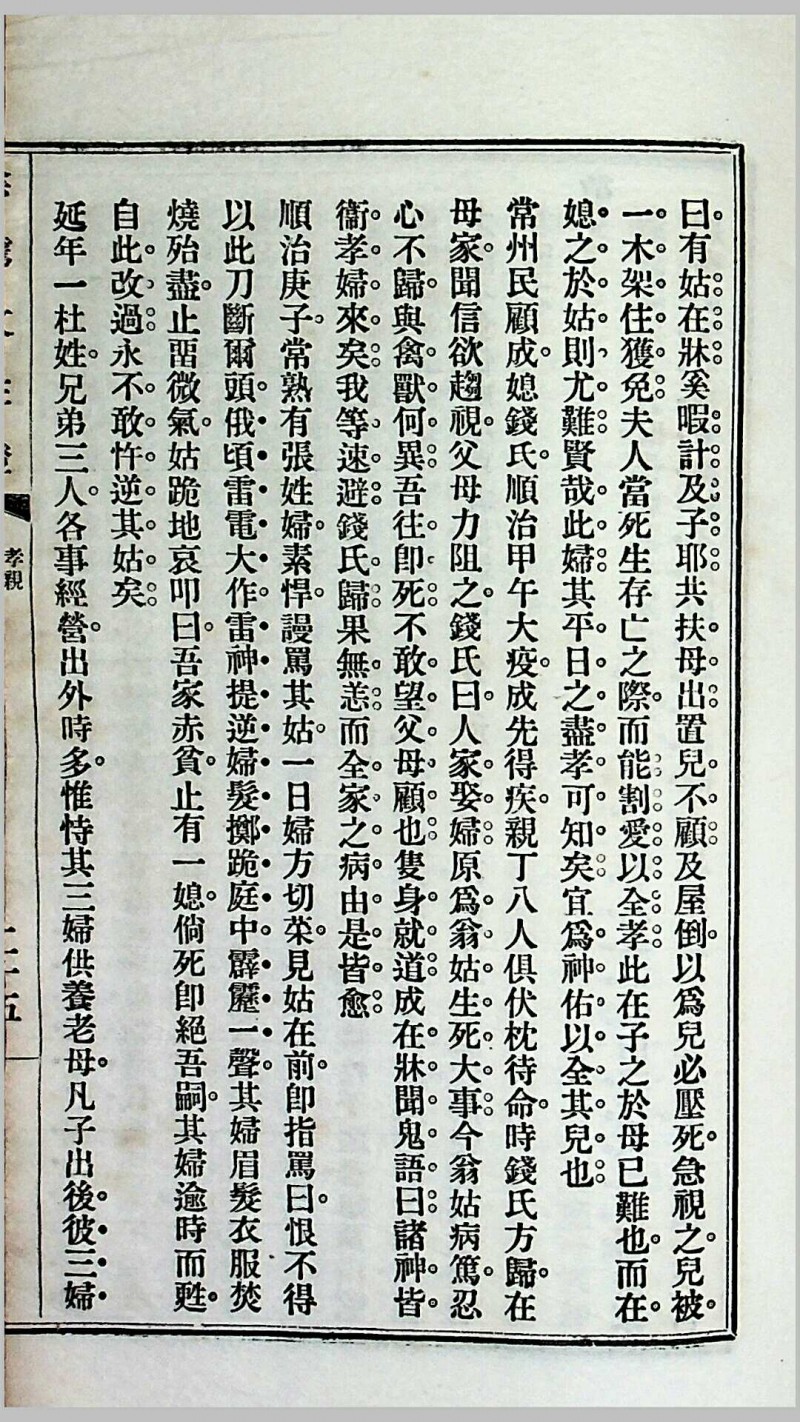 曰有姑在牀奚暇計及子耶共扶母出置兒不顧及屋倒以爲兒必壓死急視之兒被
一木架住獲免夫人當死生存亡之際而能割愛以全孝此在子之於母已難也而在
媳之於姑則尤難賢哉此婦其平日之盡孝可知矣宜爲神佑以全其兒也
常州民顧成媳錢氏順治甲午大疫成先得疾親丁八人俱伏枕待命時錢氏方歸在
母家聞信欲趨視父母力阻之錢氏曰人家娶婦原爲翁姑生死大事今翁姑病篤忍
心不歸與禽獸何異吾往卽死不敢望父母顧也隻身就道成在牀聞鬼語曰諸神皆
衞孝婦來矣我等速避錢氏歸果無恙而全家之病由是皆愈
順治庚子常熟有張姓婦素悍謾罵其姑一日婦方切菜見姑在前卽指罵曰恨不得
以此刀斷爾頭俄頃雷電大作雷神提逆婦髮擲跪庭中霹靂一聲其婦眉髮衣服焚
燒殆盡止畱微氣姑跪地哀叩曰吾家赤貧止有一媳倘死卽絕吾嗣其婦逾時而甦
自此改過永不敢忤逆其姑矣
延年一杜姓兄弟三人各事經營出外時多惟恃其三婦供養老母凡子出後彼三婦
孝親
二十五